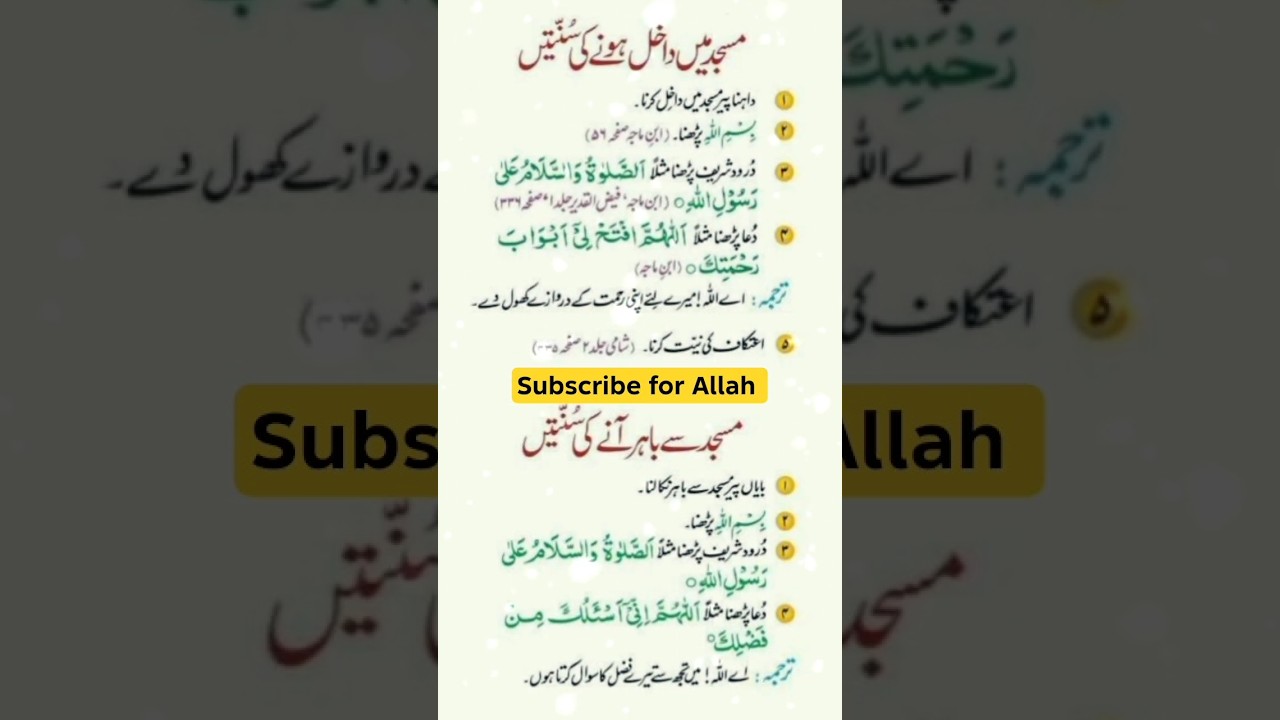 مسجد میں داخل ہونے کی سُنّتیں
۱ داہنا پیر مسجد میں داخل کرنا۔
۲ بِسْمِ اللّٰهِ پڑھنا۔ (ابن ماجہ صفحہ ۵۶)
۳ دُرود شریف پڑھنا مثلاً اَلصَّلٰوةُ وَالسَّلَامُ عَلٰی
رَسُوْلِ اللّٰهِ ○ (ابن ماجہ، فیض القدیر جلد ۱ صفحہ ۳۳۶)
۴ دُعا پڑھنا مثلاً اَللّٰهُمَّ افْتَحْ لِیْٓ اَبْوَابَ
رَحْمَتِكَ ○ (ابن ماجہ)
ترجمہ: اے اللّٰہ! میرے لئے اپنی رحمت کے دروازے کھول دے۔
۵ اعتکاف کی نیت کرنا۔ (شامی جلد ۲ صفحہ
Subscribe for Allah
مسجد سے باہر آنے کی سُنّتیں
۱ بایاں پیر مسجد سے باہر نکالنا۔
۲ بِسْمِ اللّٰهِ پڑھنا۔
۳ دُرود شریف پڑھنا مثلاً اَلصَّلٰوةُ وَالسَّلَامُ عَلٰی
رَسُوْلِ اللّٰهِ ○
۴ دُعا پڑھنا مثلاً اَللّٰهُمَّ اِنِّیْٓ اَسْئَلُكَ مِنْ
فَضْلِكَ ○
ترجمہ: اے اللّٰہ! میں تجھ سے تیرے فضل کا سوال کرتا ہوں۔